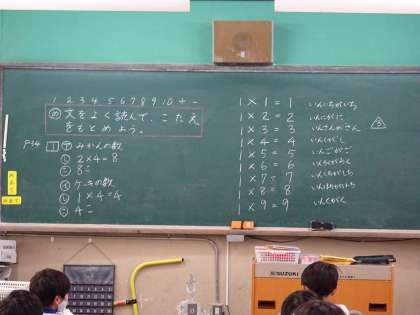 1 2 3 4 5 6 7 8 9 10 + -
め 文をよく読んで、こたえ
をもとめよう。
P34 1 ㋐ みかんの数
し 2×4=8
こ 8こ
㋑ ケーキの数
し 1×4=4
こ 4こ
1×1=1 いんいちがいち
1×2=2 いんにがに
1×3=3 いんさんがさん
1×4=4 いんしがし
1×5=5 いんごがご
1×6=6 いんろくがろく
1×7=7 いんしちがしち
1×8=8 いんはちがはち
1×9=9 いんくがく
3
SUZUKI